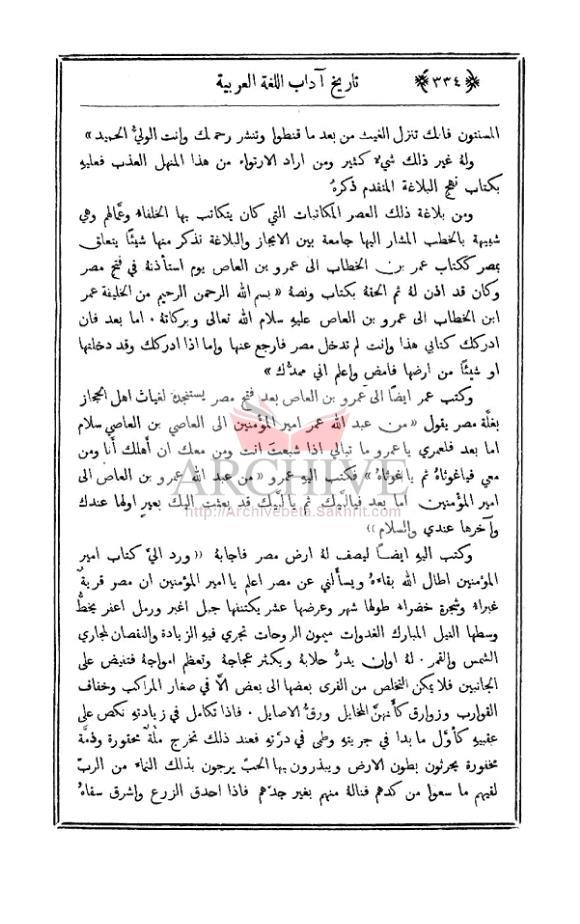 ﴿٣٣٤﴾ تاريخ آداب اللغة العربية
المسنتون فانك تنزل الغيث من بعد ما قنطوا وتنشر رحمتك وانت الوليُّ الحميد»
ولهُ غير ذلك شيءٌ كثير ومن اراد الارتواء من هذا المنهل العذب فعليهِ
بكتاب نهج البلاغة المتقدم ذكرهُ
ومن بلاغة ذلك العصر المكاتبات التي كان يتكاتب بها الخلفاءُ وعمّالهم وهي
شبيهة بالخطب المشار اليها جامعة بين الايجاز والبلاغة نذكر منها شيئًا يتعلق
بمصر ككتاب عمر بن الخطاب الى عمرو بن العاص يوم استأذنهُ في فتح مصر
وكان قد اذن لهُ ثم الحقهُ بكتاب ونصهُ «بسم الله الرحمن الرحيم من الخليفة عمر
ابن الخطاب الى عمرو بن العاص عليهِ سلام الله تعالى وبركاتهُ . اما بعد فان
ادركك كتابي هذا وانت لم تدخل مصر فارجع عنها واما اذا ادركك وقد دخلتها
او شيئًا من ارضها فامض وإعلم اني ممدُّك»
وكتب عمر ايضًا الى عمرو بن العاص بعد فتح مصر يستنجدهُ لغياث اهل الحجاز
بغلّة مصر يقول «من عبد الله عمر امير المؤمنين الى العاصي بن العاصي سلام
اما بعد فلعمري يا عمرو ما تبالي اذا شبعت انت ومن معك ان أهلك أنا ومن
معي فياغوثاهُ ثم ياغوثاهُ» فكتب اليهِ عمرو «من عبد الله عمرو بن العاص الى
امير المؤمنين اما بعد فيالبّيك ثم يالبّيك قد بعثت اليك بعير اولها عندك
وآخرها عندي والسلام»
وكتب اليهِ ايضًا ليصف لهُ ارض مصر فاجابهُ «ورد اليَّ كتاب امير
المؤمنين اطال الله بقاءهُ ويسألني عن مصر اعلم يا امير المؤمنين ان مصر قريةٌ
غبراءُ وشجرة خضراءُ طولها شهر وعرضها عشر يكتنفها جبل اغبر ورمل اعفر يخطُّ
وسطها النيل المبارك الغدوات ميمون الروحات تجري فيهِ الزيادة والنقصان لمجاري
الشمس والقمر . لهُ اوان يدرُّ حلابهُ ويكثر عجاجهُ وتعظم امواجهُ فتفيض على
الجانبين فلا يمكن التخلص من القرى بعضها الى بعض الّا في صغار المراكب وخفاف
القوارب وزوارق كأنهنَّ المخايل ورقُ الاصايل . فاذا تكامل في زيادتهِ نكص على
عقبيهِ كأوَّل ما بدا في جريتهِ وطى في درّتهِ فعند ذلك تخرج ملّةٌ محقورة وذمَّة
مخفورة يحرثون بطون الارض ويبذرون بها الحبّ يرجون بذلك النماءَ من الربّ
لغيرهم ما سعوا من كدهم فنالهُ منهم بغير جدّهم فاذا احدق الزرع وإشرق سقاهُ
ARCHIVE
http://Archivebeta.Sakhrit.com